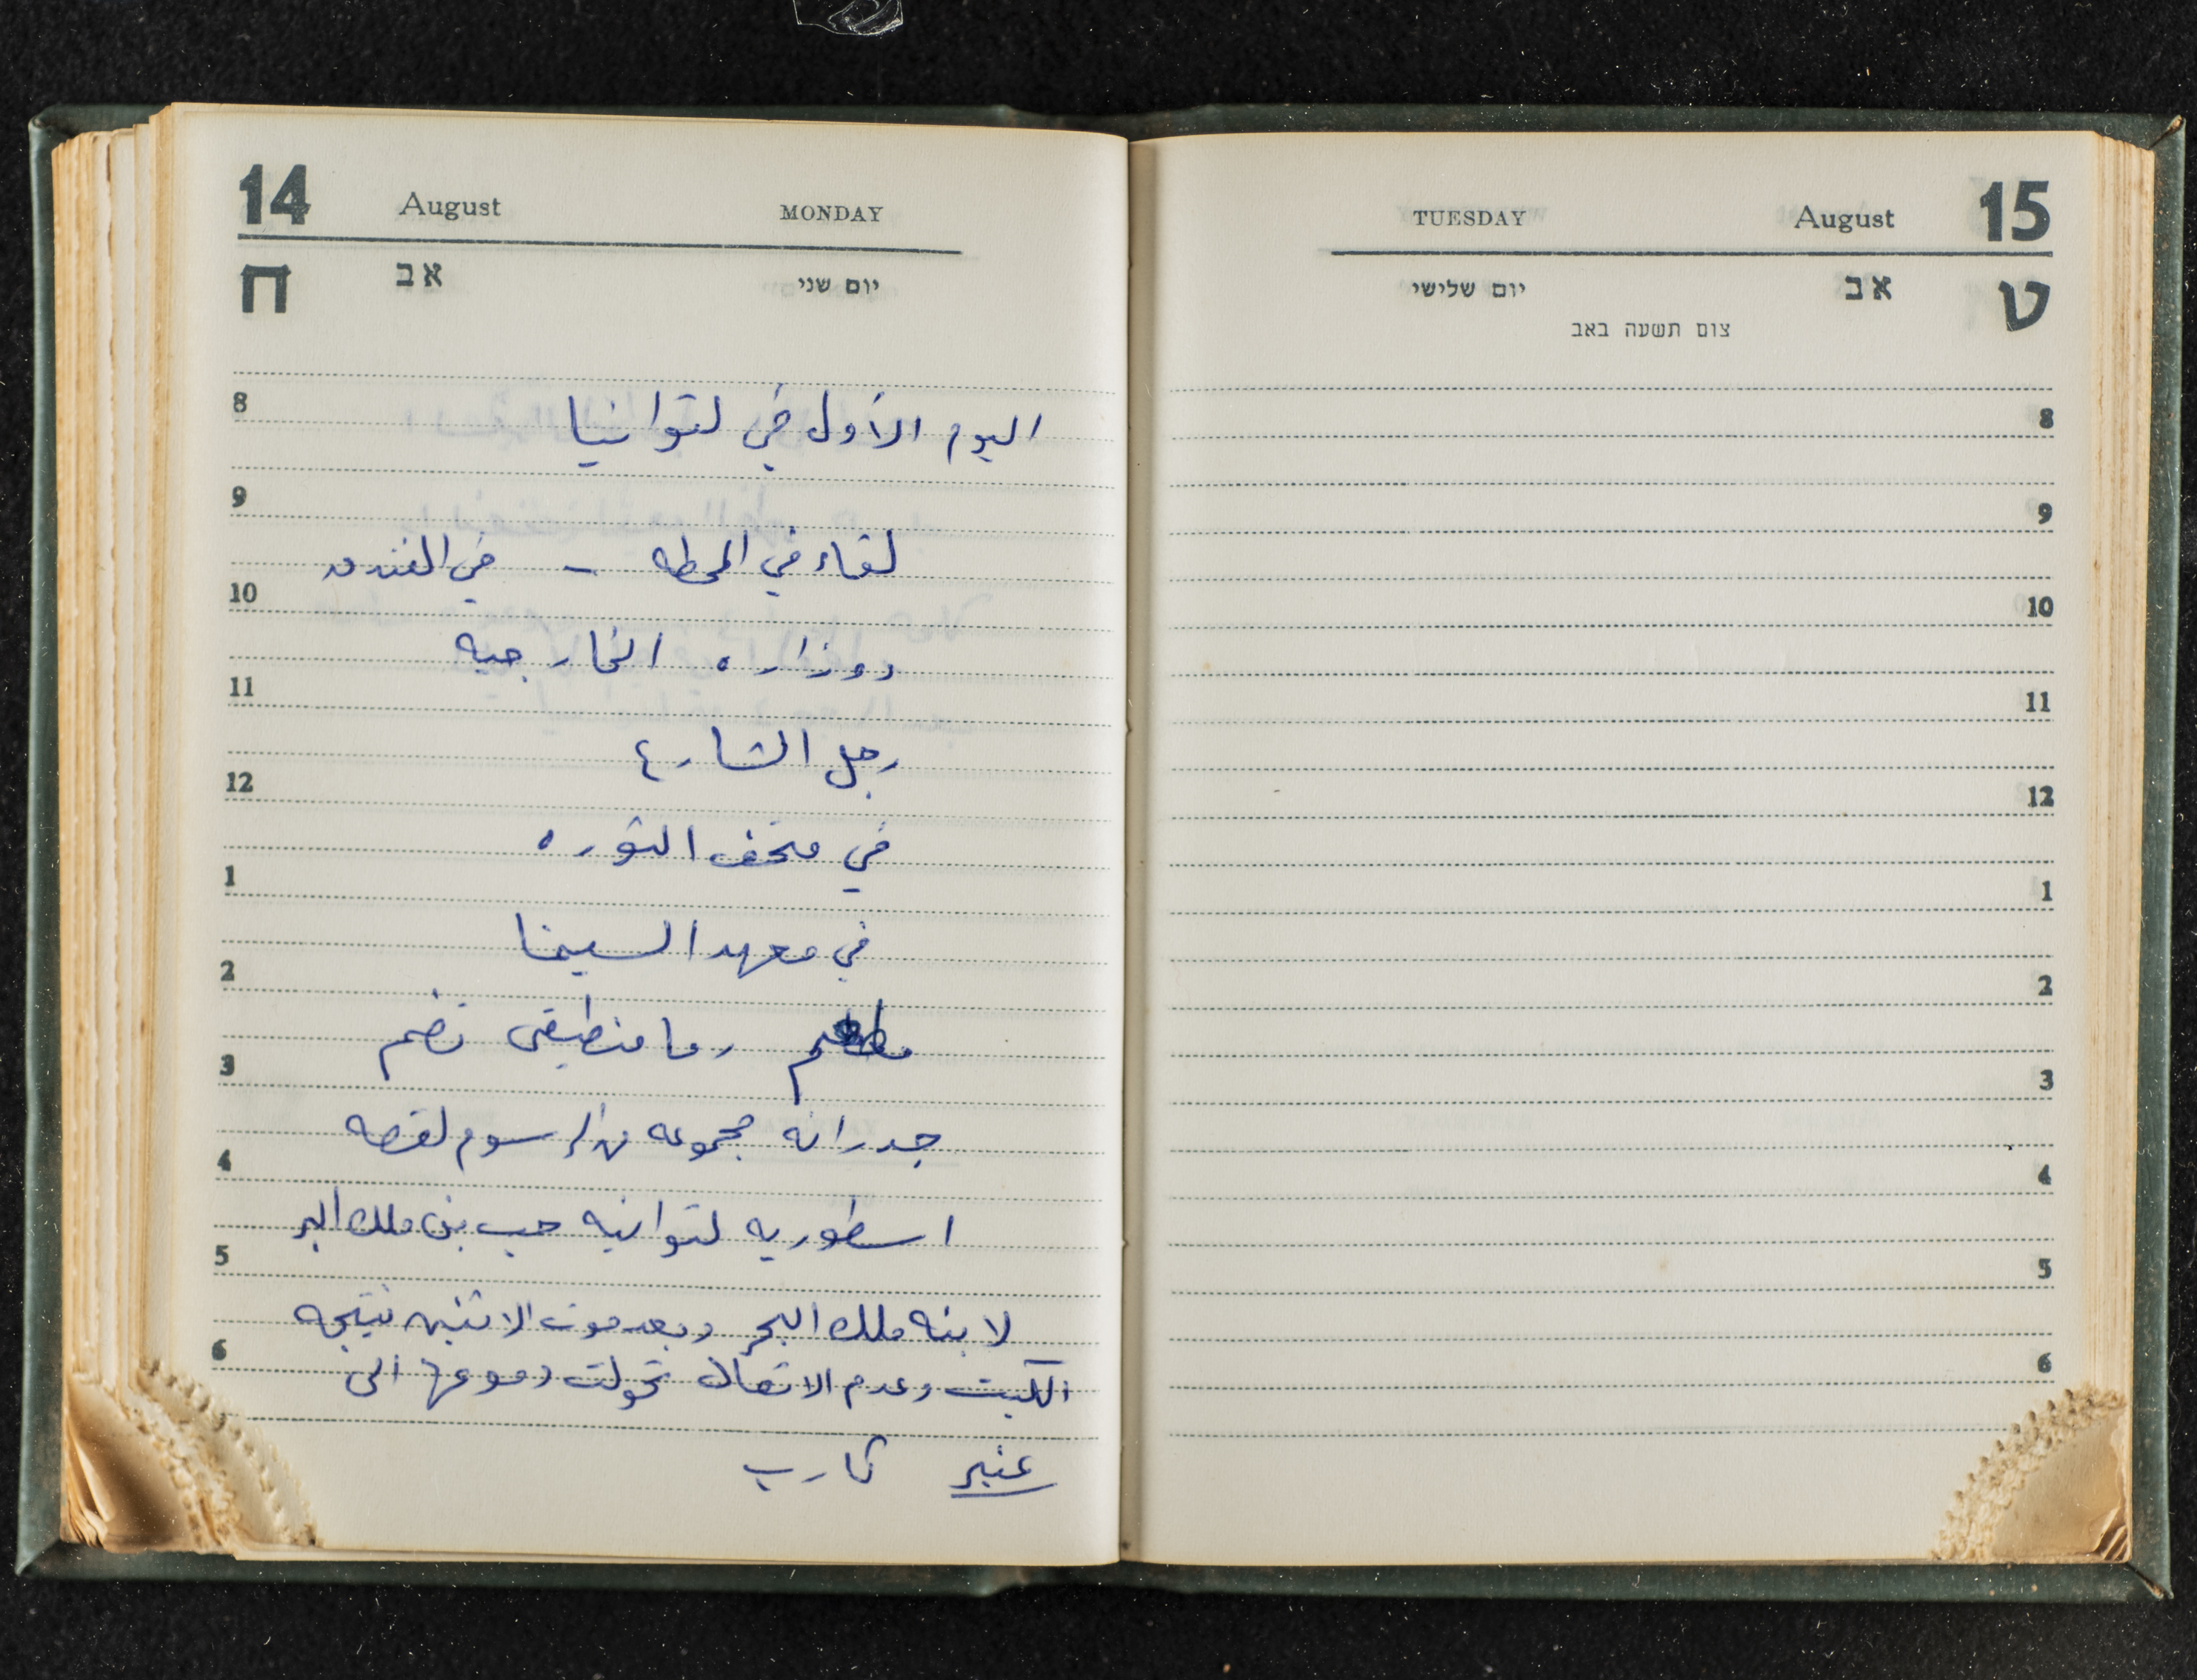 14 August MONDAY
ח אב יום שני
8
اليوم الأول في لتوانيا
9
لقاء في المحطه – في الفندق
10
ووزاره الخارجيه
11
رجل الشارع
12
في متحف الثوره
1
في معهد السينما
2
مطعم رومانطيقي تضم
3
جدرانه مجموعه من الرسوم لقصه
4
اسطوريه لتوانيه حب بين ملك البر
5
لابنه ملك البحر وبعد موت الاثنين نتيجه
6
الكبت وعدم الاتصال تحولت دموعها الى
عنبر كارب
TUESDAY August 15
יום שלישי אב ט
צום תשעה באב
8
9
10
11
12
1
2
3
4
5
6